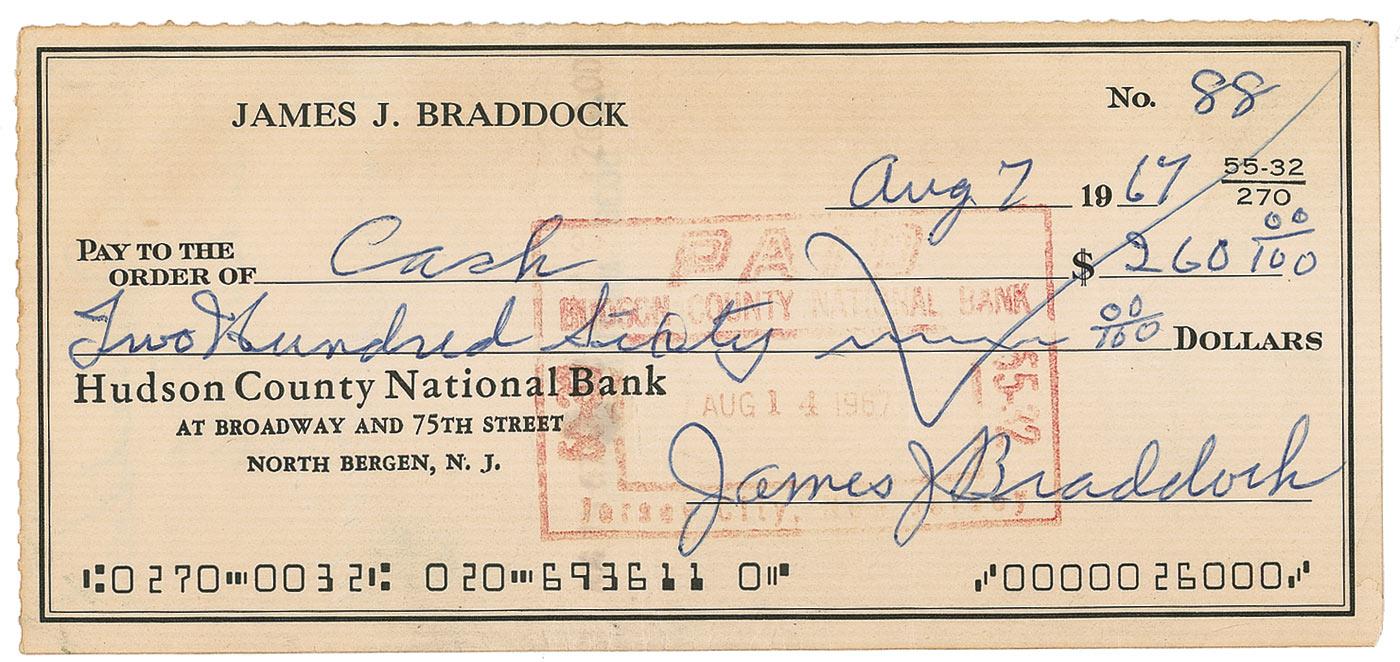 JAMES J. BRADDOCK
No. 88
Aug 7 1967
55-32
270
PAY TO THE
ORDER OF Cash $ 260 00/100
Two Hundred Sixty 00/100 DOLLARS
PAID
HUDSON COUNTY NATIONAL BANK
AUG 14 1967
55-32
Jersey City, New Jersey
Hudson County National Bank
AT BROADWAY AND 75TH STREET
NORTH BERGEN, N. J.
James J Braddock
⑆0270⑉0032⑆ 020⑉693611 0⑈ ⑇0000026000⑇